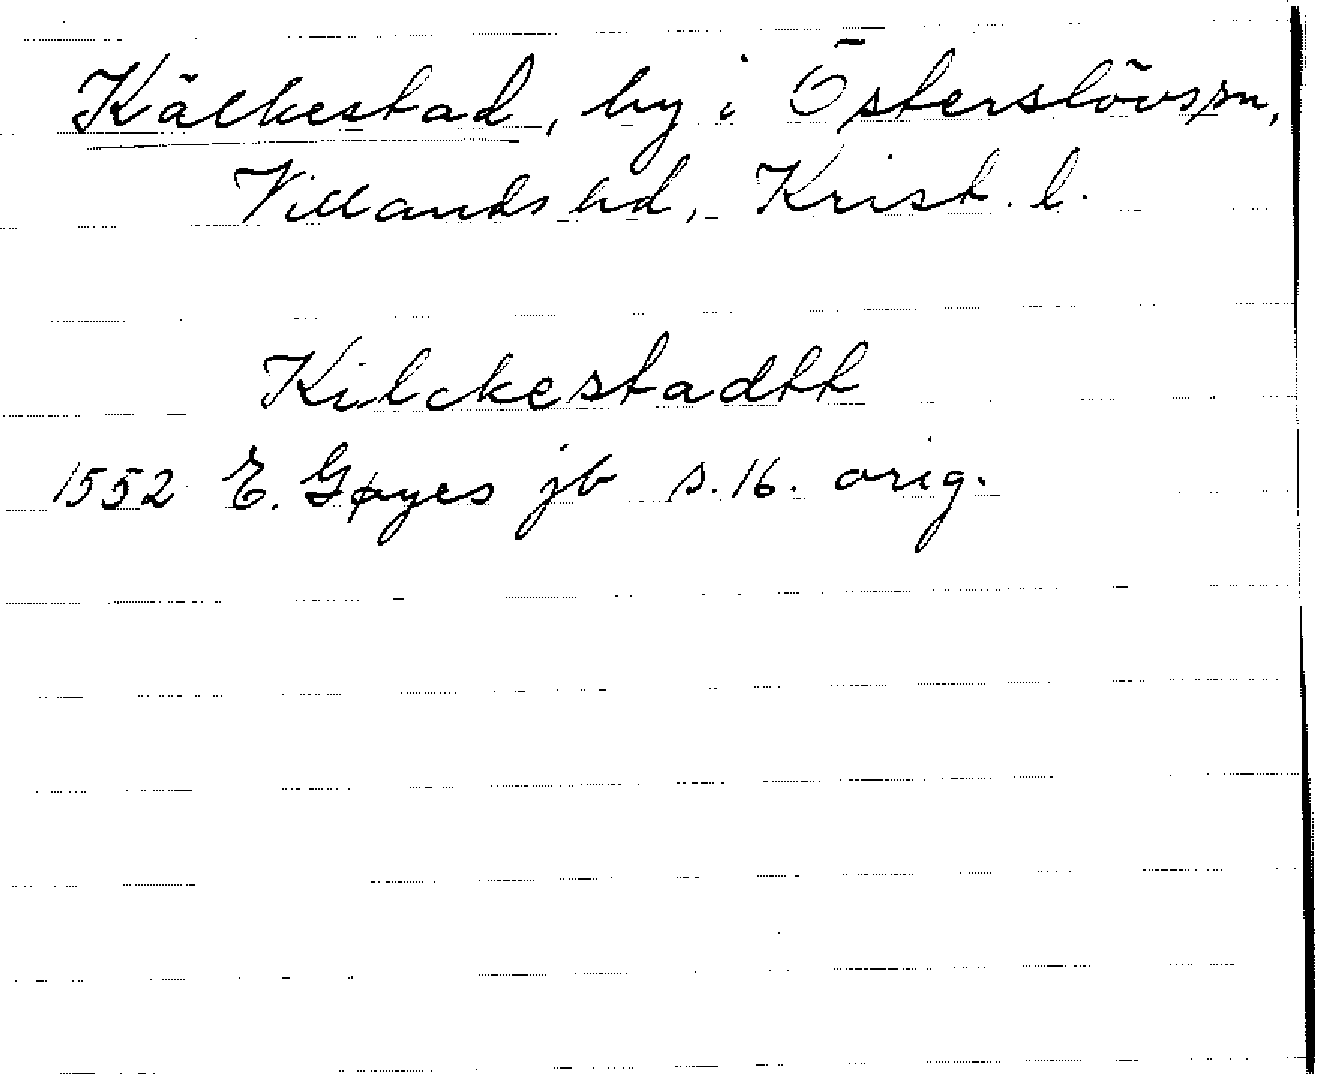 Kälkestad, by i Österslövs sn,
Villands hd, Krist. l.
Kilckestadtt
1552 E. Gøyes jb s. 16. orig.